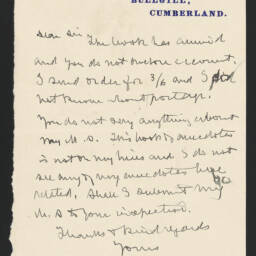 BULLGILL,
CUMBERLAND.
Dear Sir The book has arrived
and you do not enclose account.
I send order for 3/6 and I did
not know about postage.
You do not say anything about
my M.S. This book of anecdotes
is not on my lines and I do not
see any of my anecdotes here
related. Shall I submit my
M.S to your inspection.
Thanks & kind regards
Yours